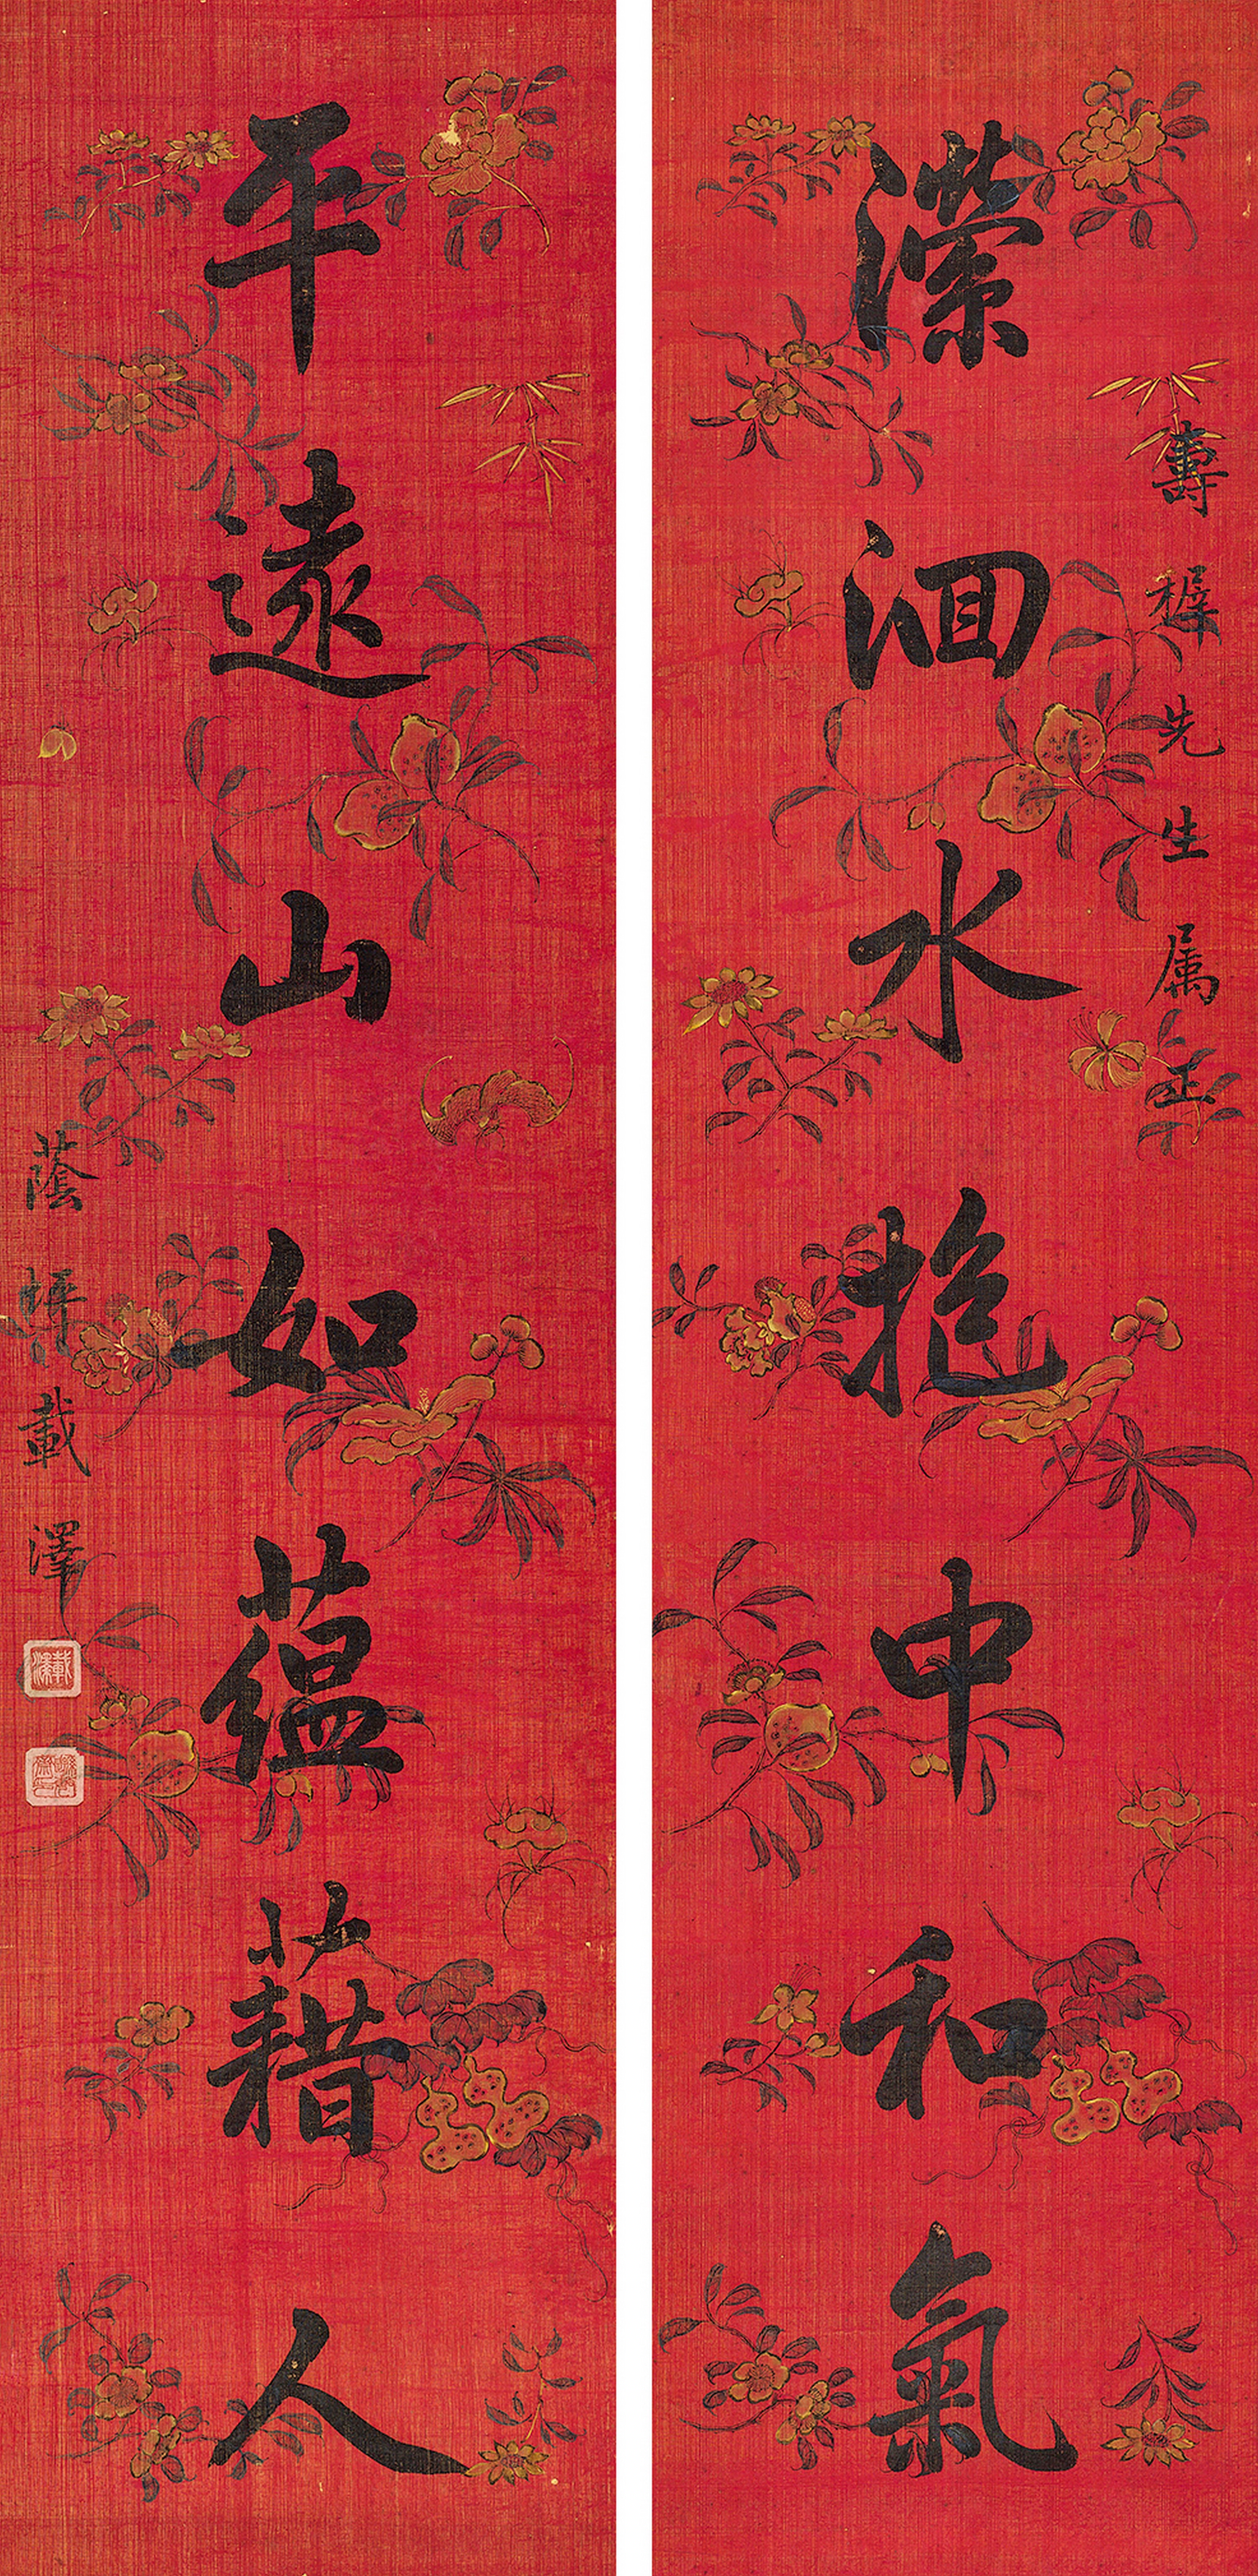 瀠洄水抱中和氣
壽樨先生属正
平遠山如蘊藉人
蔭坪載澤
載澤